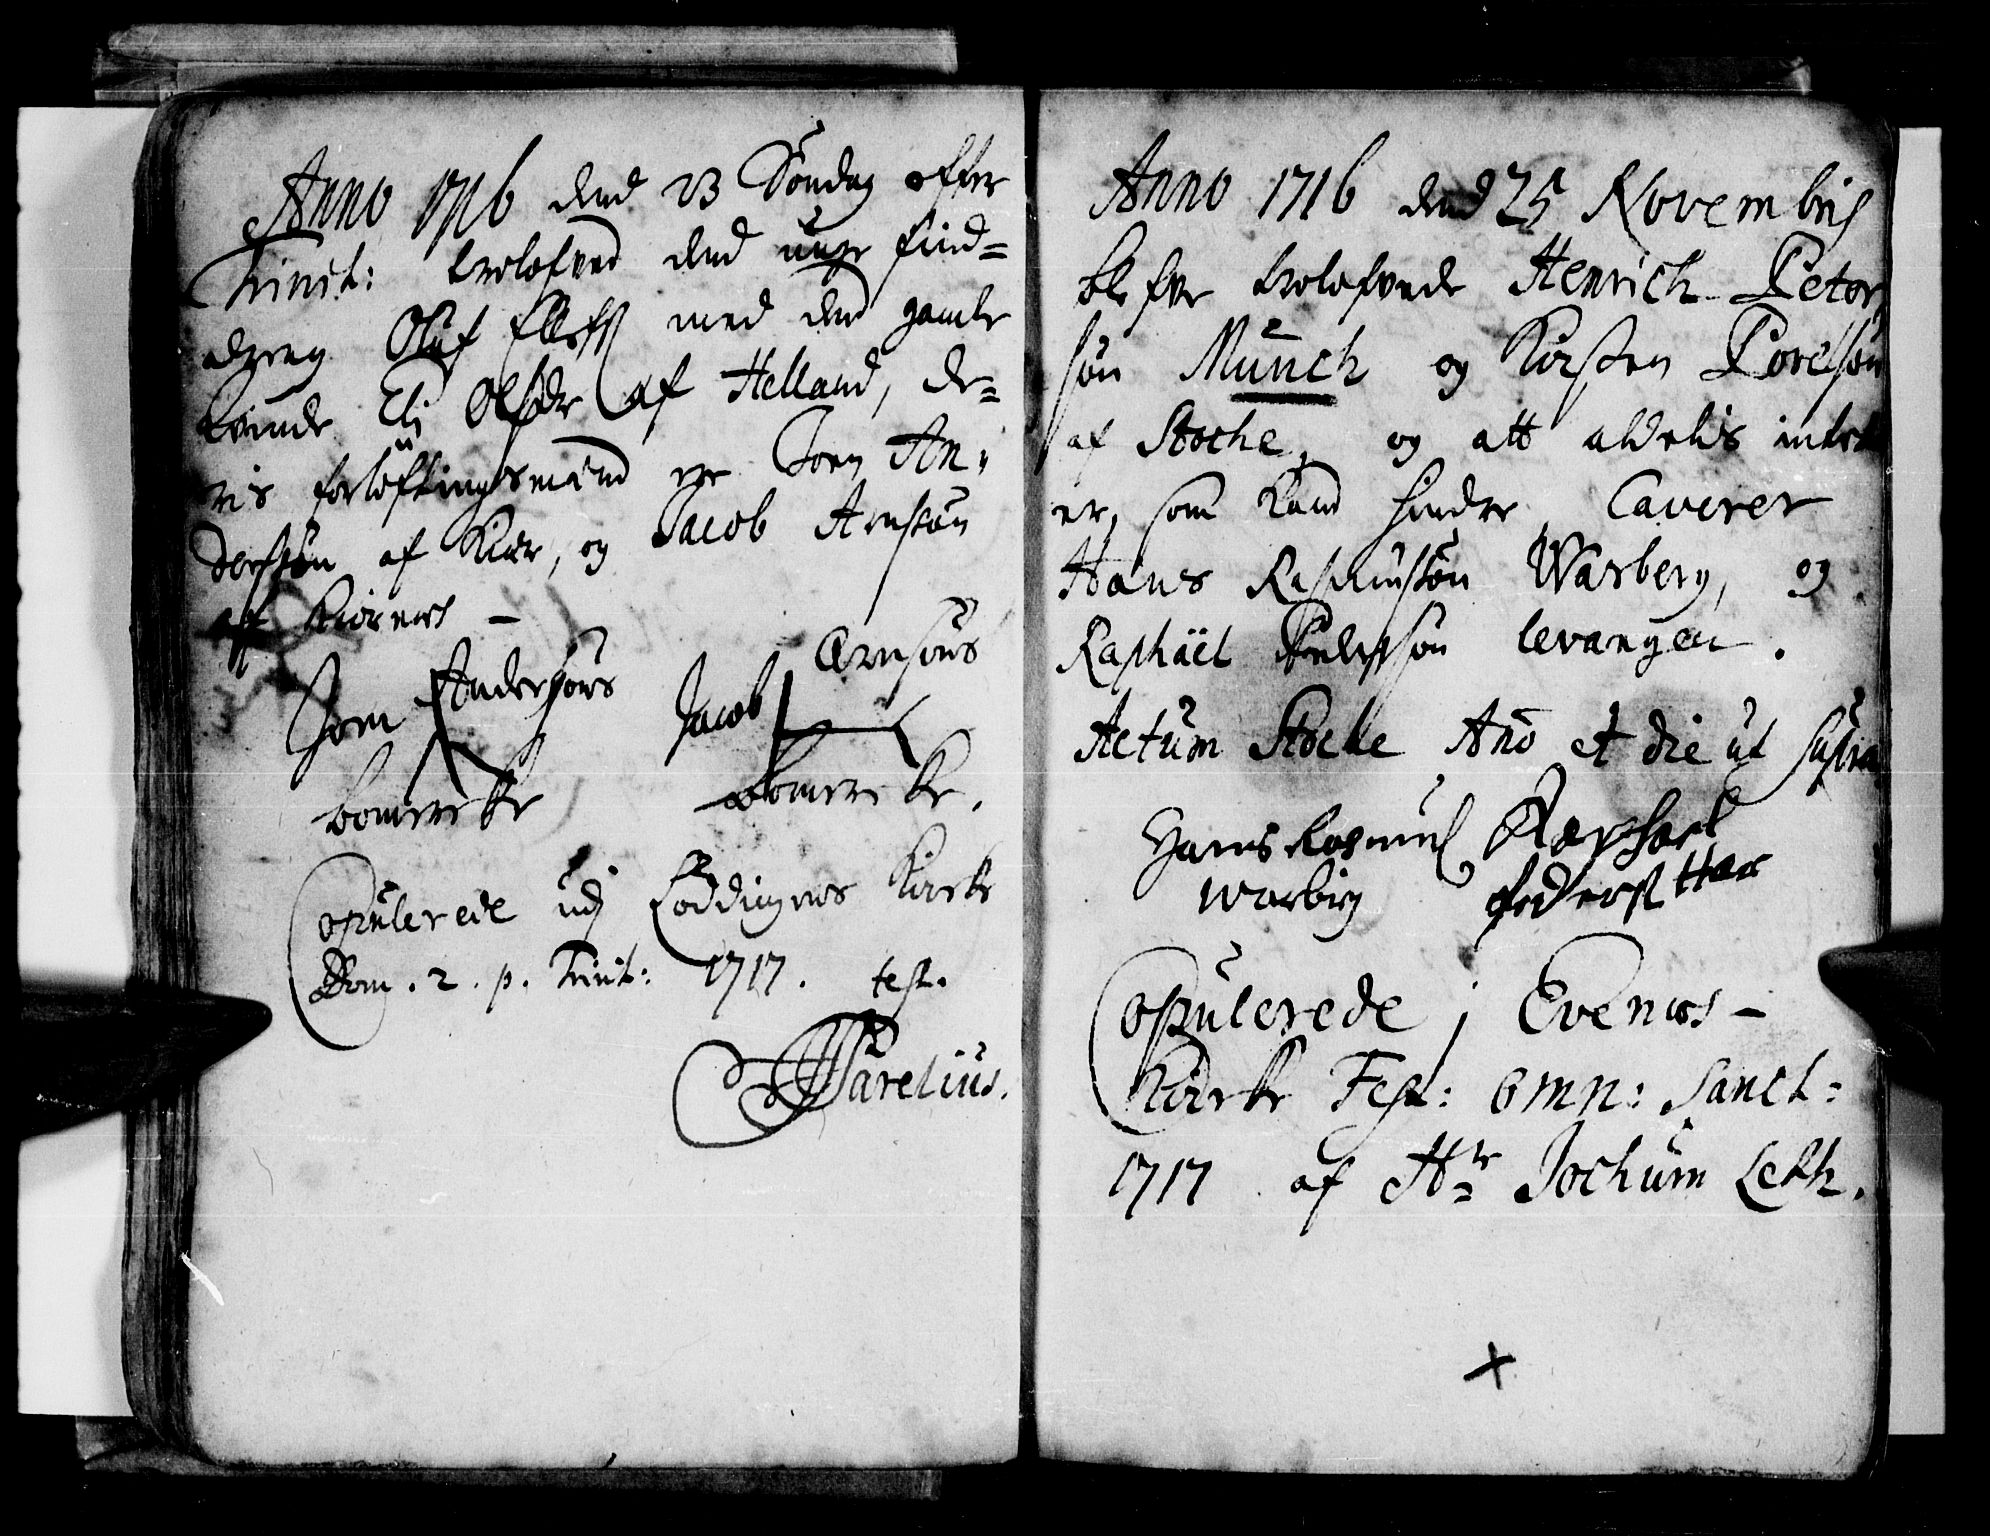 Anno 1716 dend 23 Söndag effter
Trinit: trolofved dend unge find=
dreng Oluf Ellefs med dend gamle
Kvinde Eli Olsdr af Helland, de=
ris forlöftingsmænd ere Joen An,
dersøn af Kiær, og Jacob Arnsøn
aff Kiørnæs –
Joen Andersøns Jacob Arnsøns
bomercke bomercke.
Copulerede udj Loddingens Kircke
Dom. 2. p. Trinit: 1717. test.
Parelius.
Anno 1716 dend 25 Novembris
blefve trolofvede Henrich Peter
søn Munch og Kirsten Povelsön
af Stoche, og att aldelis intet
er, som kand hindre Caverer
Hans Rasmusøn Warberg, og
Raphäel Pedersøn levangen.
Actum Stoche Año et die ut supra
Hans Rasmus Raphael
Warbirg Pederss Har
Copulerede j Evenæs –
Kircke Fest: omn: Sanct:
1717 af Hr Jochum Leth.